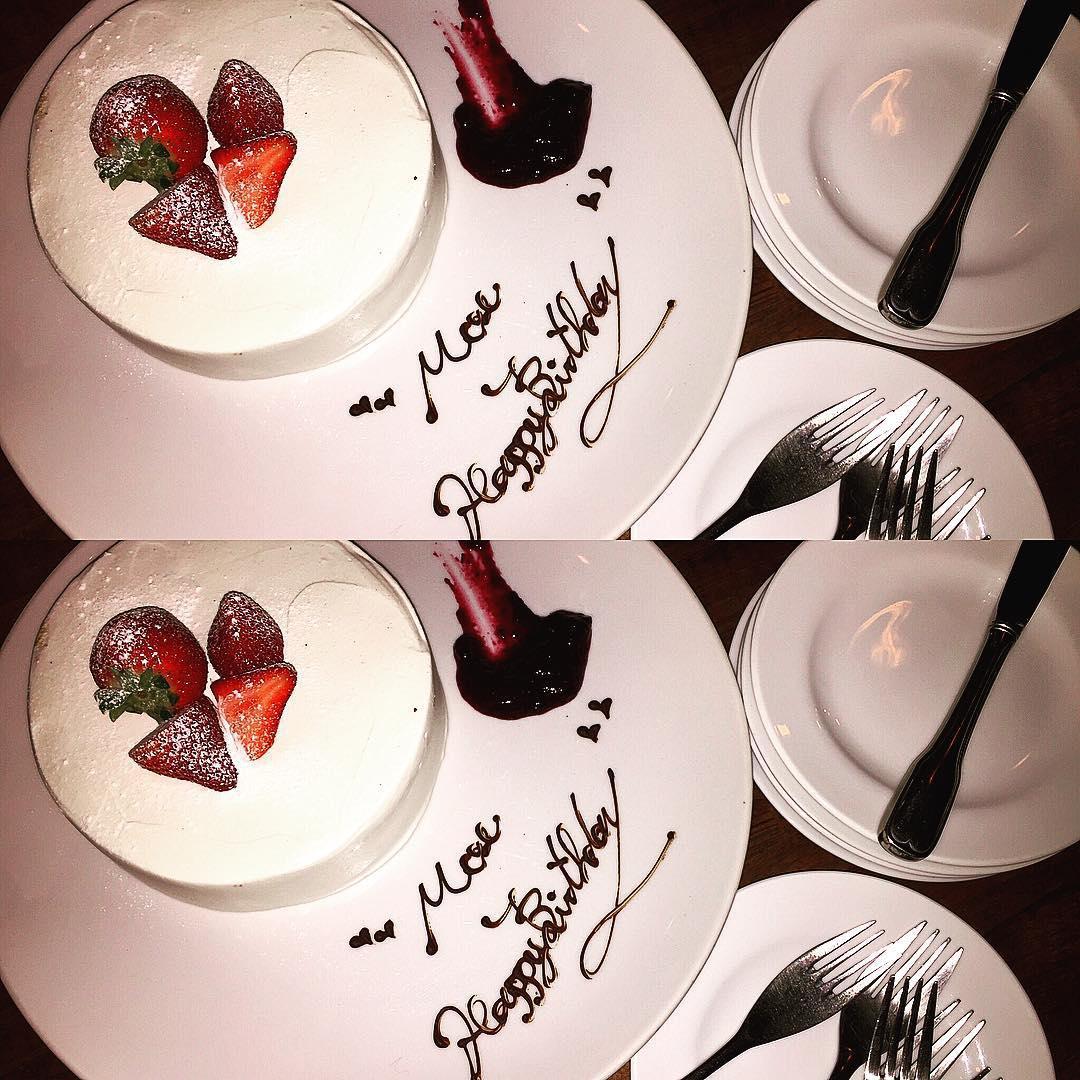 Moe
Happy Birthday
Moe
Happy Birthday